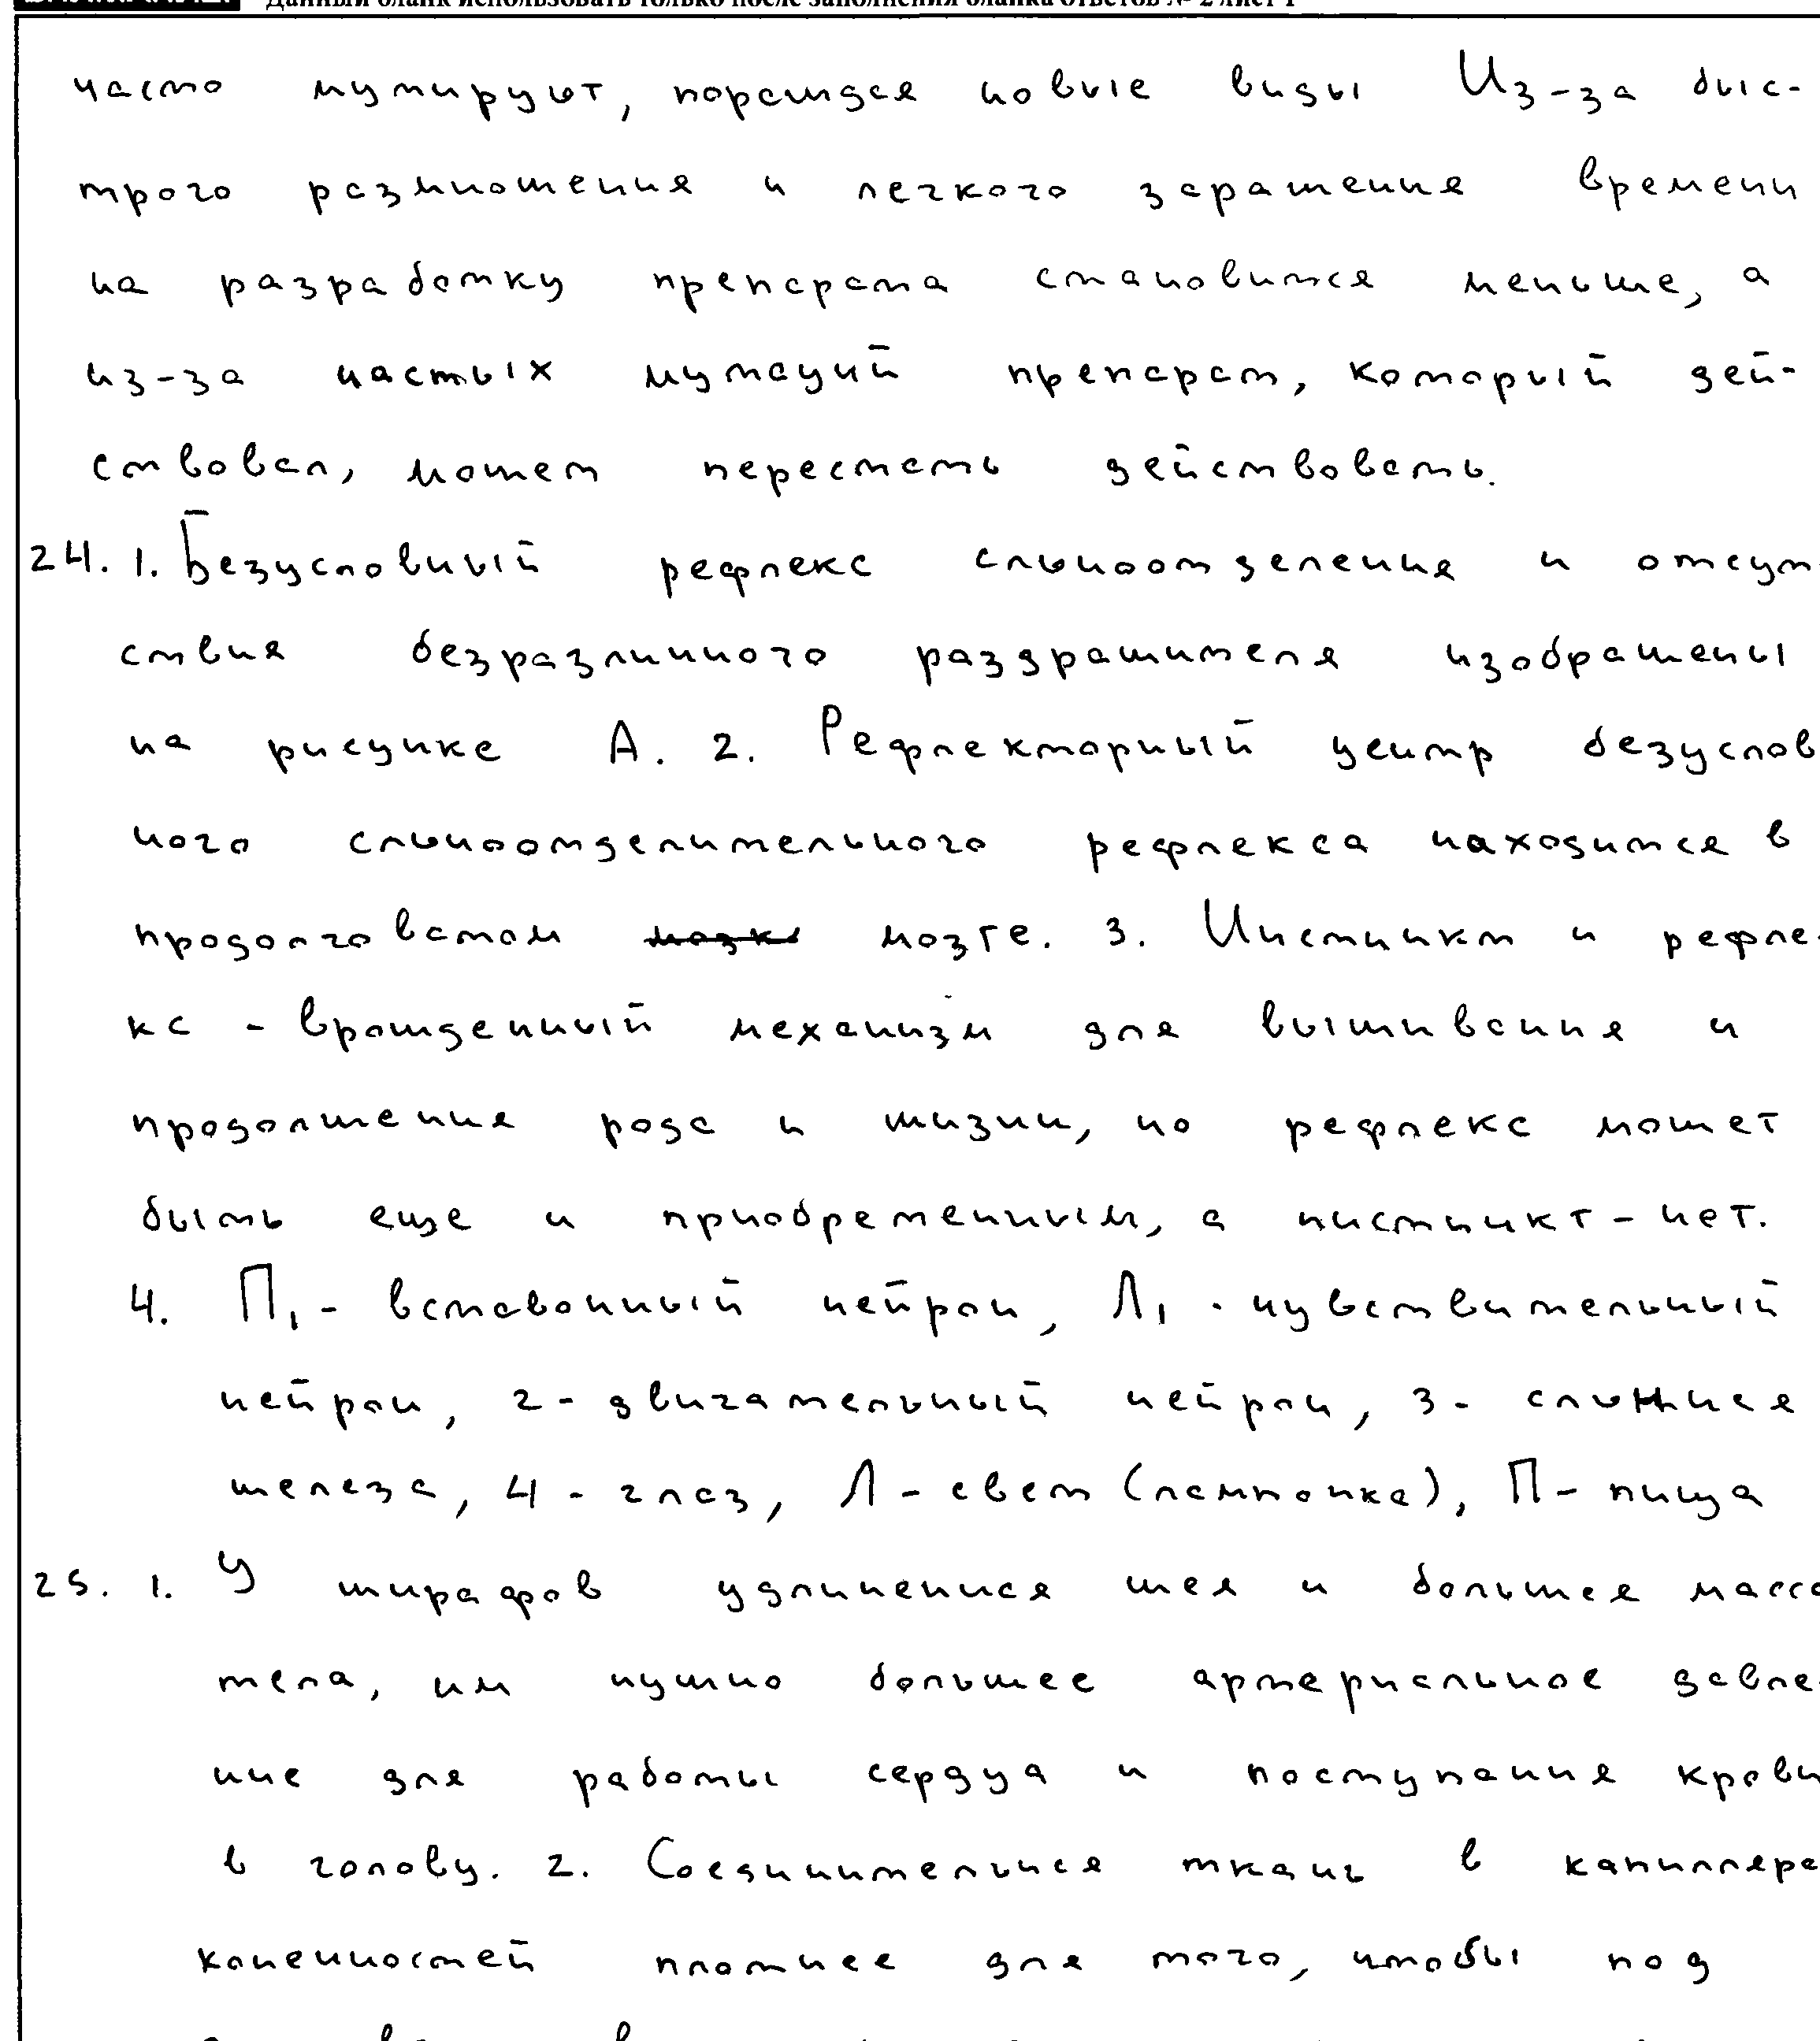 Данный бланк использовать только после заполнения бланка ответов № 2 лист 1
часто мутируют, порождая новые виды Из-за быс-
трого размножения и легкого заражения времени
на разработку препарата становится меньше, а
из-за частых мутаций препарат, который дей-
ствовал, может перестать действовать.
24. 1. Безусловный рефлекс слюноотделения и отсут
ствия безразличного раздражителя изображены
на рисунке А. 2. Рефлекторный центр безуслов
ного слюноотделительного рефлекса находится в
продолговатом мозгe. 3. Инстинкт и рефле-
кс - врожденный механизм для выживания и
продолжения рода и жизни, но рефлекс может
быть еще и приобретенным, а инстинкт - нет.
4. П₁ - вставочный нейрон, Л₁ - чувствительный
нейрон, 2 - двигательный нейрон, 3 - слюнная
железа, 4 - глаз, Л - свет (лампочка), П - пища
25. 1. У жирафов удлиненная шея и большая масса
тела, им нужно большее артериальное давле-
ние для работы сердца и поступания крови
в голову. 2. Соединительная ткань в капилляра
конечностей плотнее для того, чтобы под